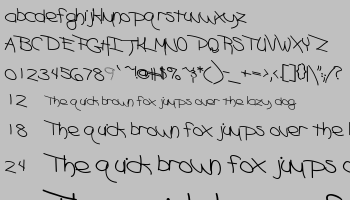 abcdefghijklmnopqrstuvwxyz
ABCDEFGHIJKLMNOPQRSTUVWXYZ
0123456789
12 The quick brown fox jumps over the lazy dog
18 The quick brown fox jumps over the l
24 The quick brown fox jumps o